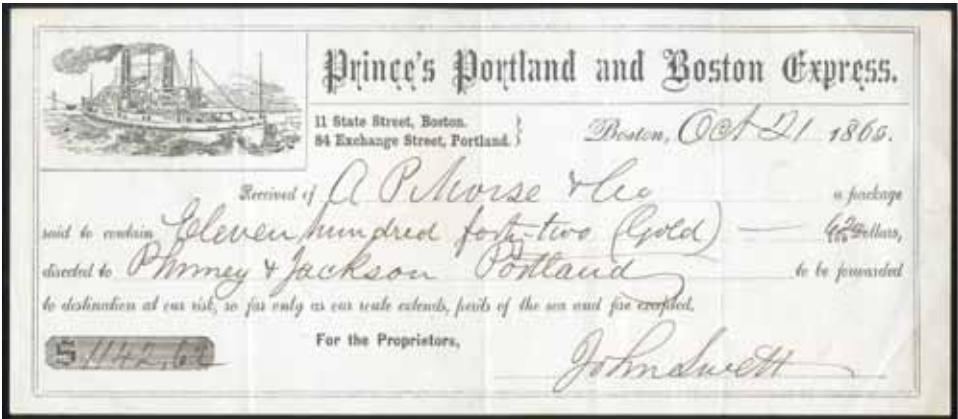 Prince's Portland and Boston Express.
11 State Street, Boston.
84 Exchange Street, Portland.
Boston, Oct 21 1865.
Received of A P Morse & Co a package
said to contain Eleven hundred forty-two (Gold) — 62/100 Dollars,
directed to Phinney & Jackson Portland to be forwarded
to destination at our risk, so far only as our route extends, perils of the sea and fire excepted.
$ 1142,62
For the Proprietors,
John Swett